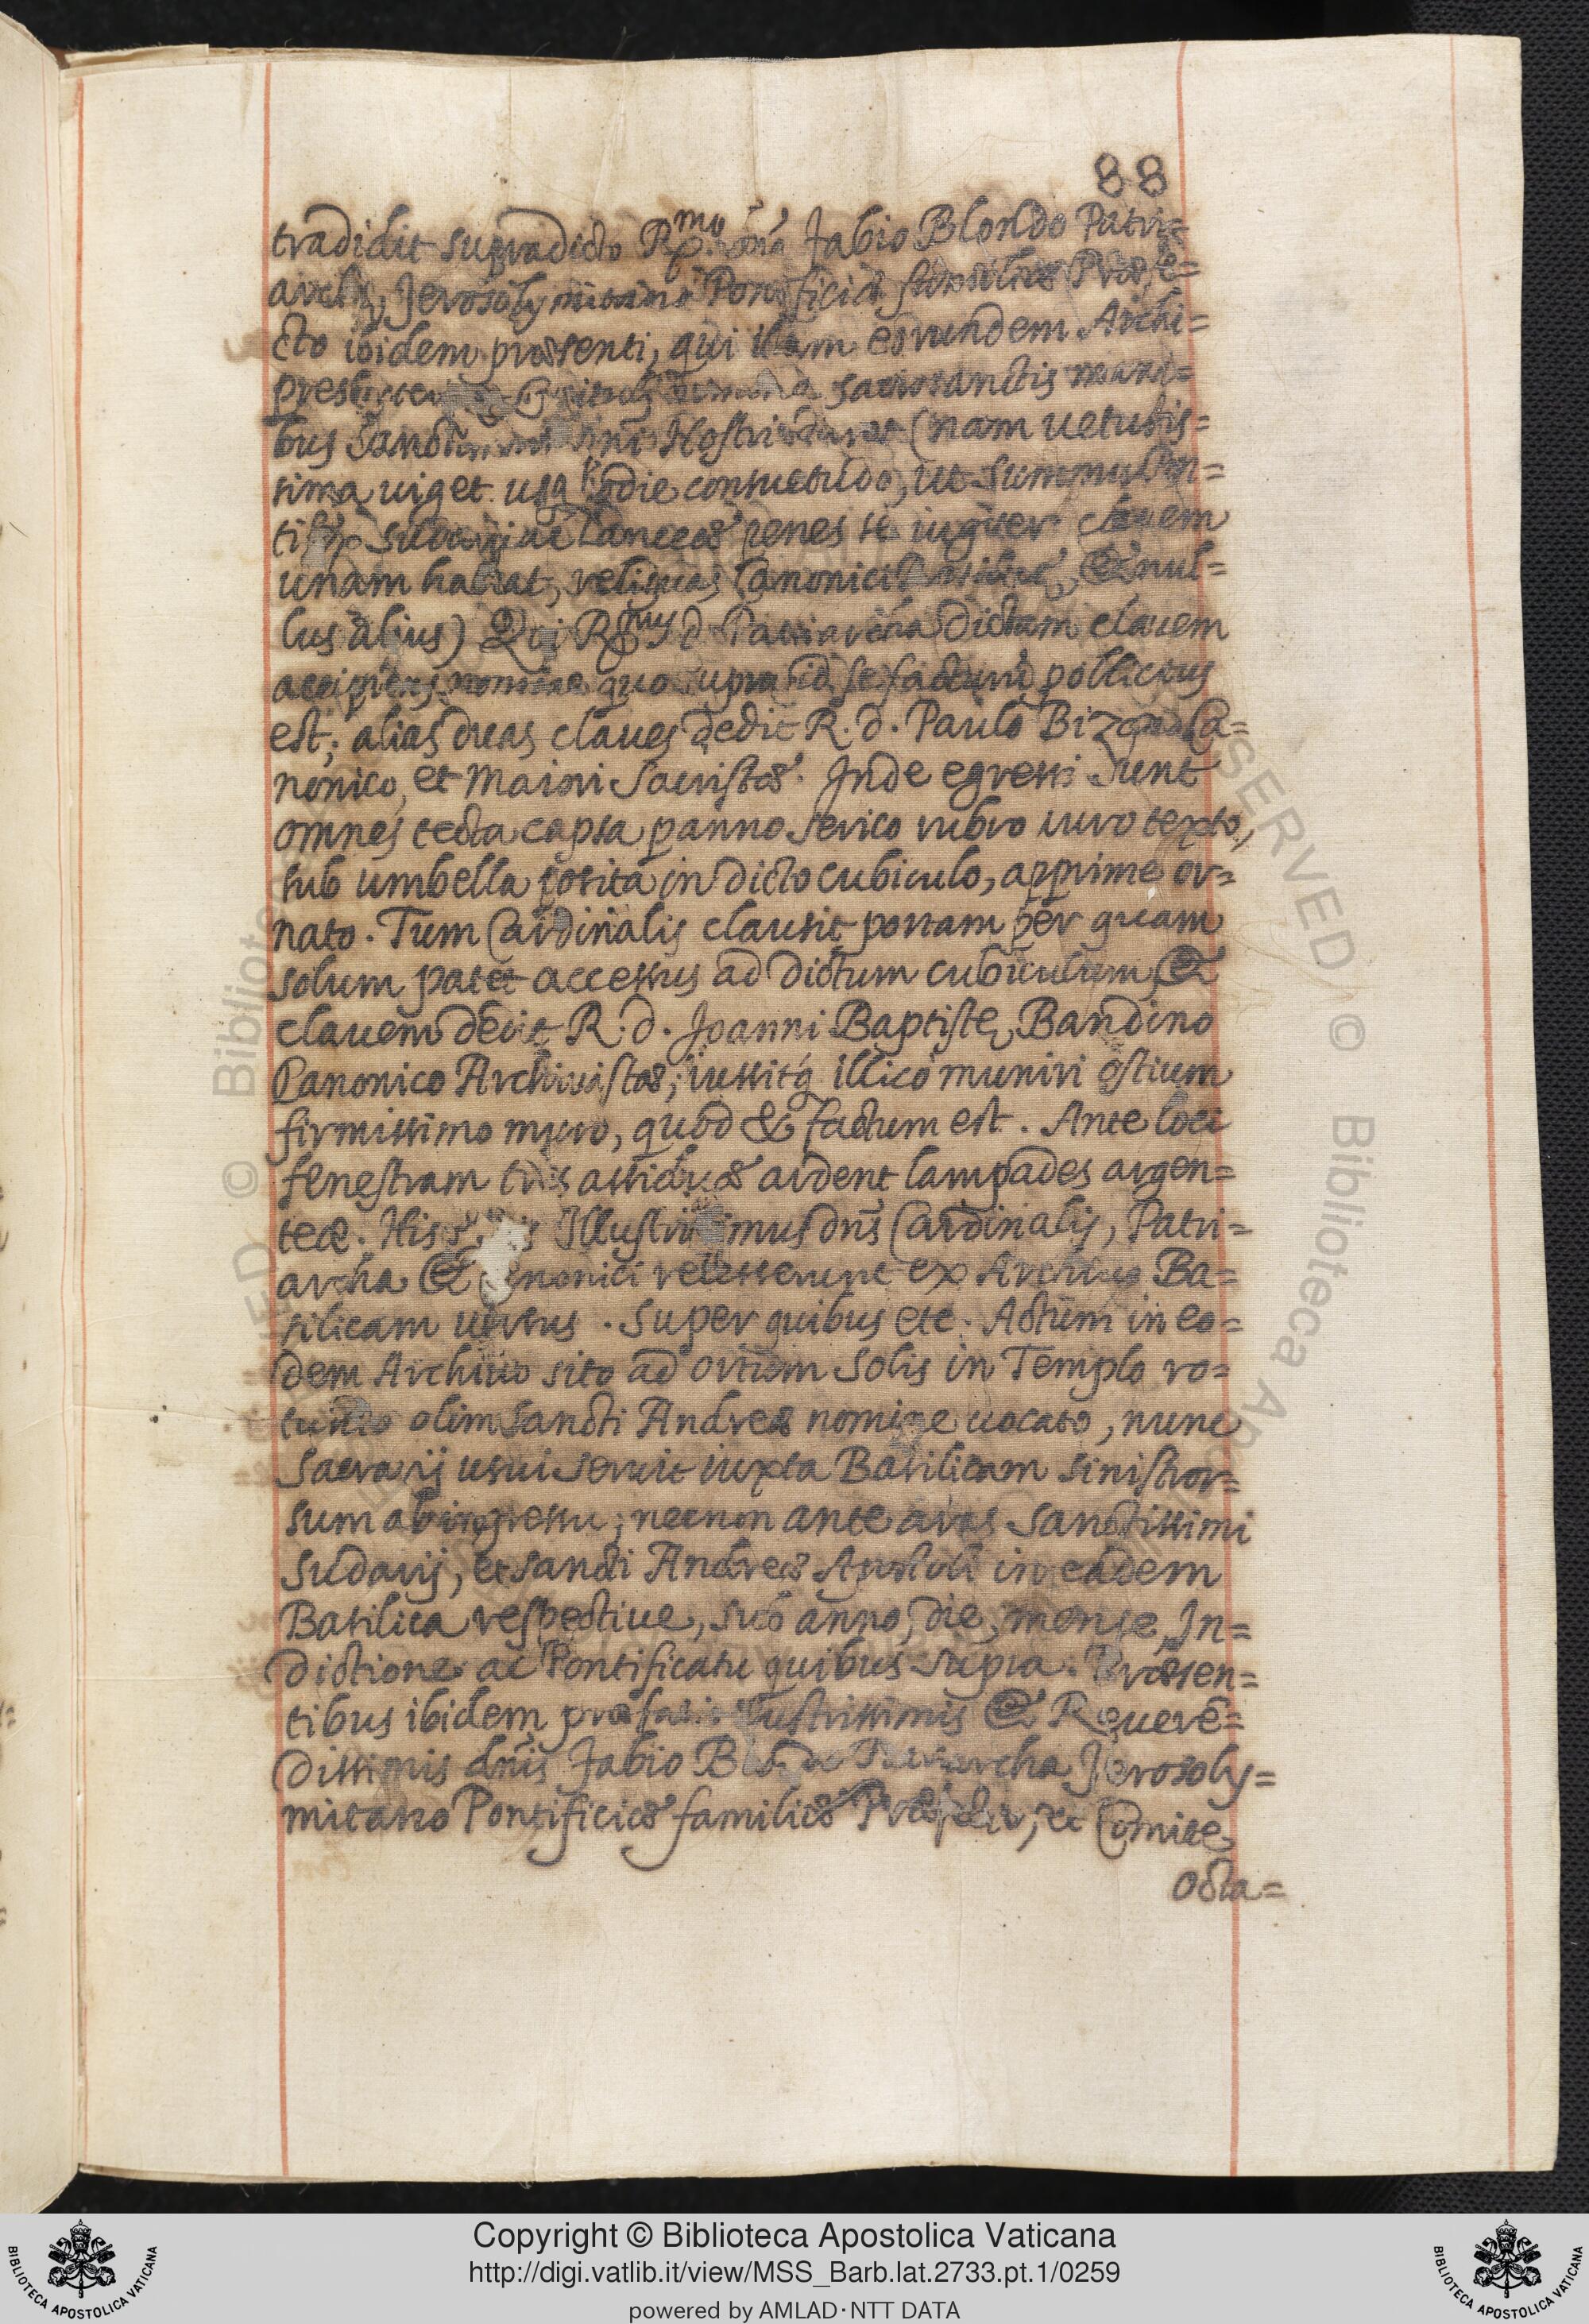 88
tradidit supradicto R.mo Fabio Blondo Patri=
archæ Jerosolymitano Pontificiæ familiæ Præfe=
cto ibidem præsenti, qui illam eorundem Archi=
presbyteri sacrosanctis mani=
bus Nostri (nam uetustis=
sima uiget usq hodie consuetudo, ut summus Pon=
tifex Lanceæ penes se iugiter clauem
unam habeat, reliquas Canonici et nul=
lus alius) Qui R.mus d. Patriarcha dictam clauem
accipiens nomine quo supra id se facturum pollicitus
est; alias duas claues dedit R. d. Paulo Bizono Ca=
nonico, et maiori Sacristæ. Inde egressi sunt
omnes tecta capsa panno serico rubro auro texto,
sub umbella posita in dicto cubiculo, apprime or=
nato. Tum Cardinalis clausit portam per quam
solum patet accessus ad dictum cubiculum, &
clauem dedit R. d. Joanni Baptistę Bandino
Canonico Archiuistæ; iussitq́ illico muniri ostium
firmissimo muro, quod & factum est. Ante loci
fenestram tres assiduæ ardent lampades argen=
teæ. His Illustrissimus dn̄s Cardinalis, Patri=
archa & Canonici recesserunt ex Archiuo Ba=
silicam uersus. Super quibus etc. Actum in eo=
dem Archiuo sito ad ortum Solis in Templo ro=
tundo olim sancti Andreæ nomine uocato, nunc
Sacrarij usui seruit iuxta Basilicam sinistror=
sum ab ingressu; necnon ante aras Sanctissimi
Sudarij, et sancti Andreæ Apostoli in eadem
Basilica respectiue, sub anno, die, mense, In=
dictione ac Pontificatu quibus supra. Præsen=
tibus ibidem præfatis Illustrissimis & Reuerē=
dissimis dn̄is Fabio Blondo Patriarcha Jerosoly=
mitano Pontificiæ familiæ Præfecto, et Comite
Octa=
© Biblioteca Apostolica Vaticana
Copyright © Biblioteca Apostolica Vaticana
http://digi.vatlib.it/view/MSS_Barb.lat.2733.pt.1/0259
powered by AMLAD·NTT DATA
BIBLIOTECA APOSTOLICA VATICANA
BIBLIOTECA APOSTOLICA VATICANA